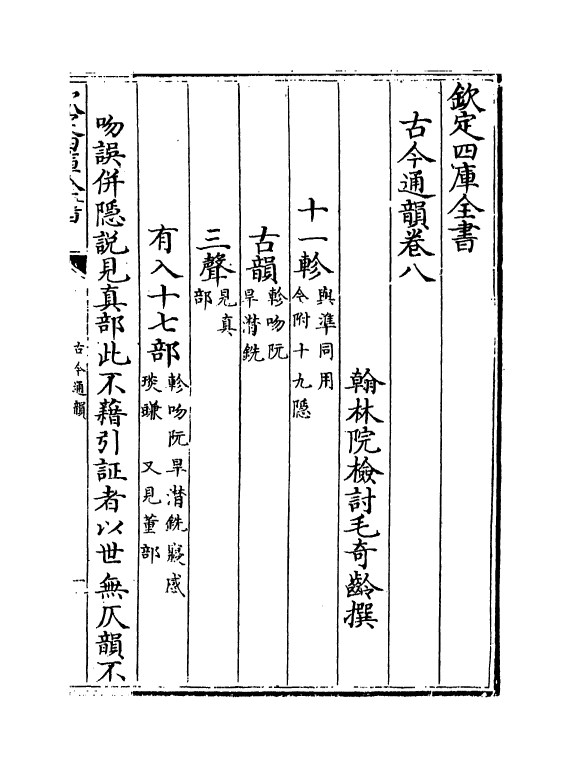 欽定四庫全書
古今通韻卷八
翰林院檢討毛奇齡撰
十一軫
與準同用
今附十九隱
古韻
軫吻阮
旱潸銑
三聲
見真
部
有入十七部
軫吻阮旱潸銑寢感
琰豏 又見董部
吻誤併隱説見真部此不藉引証者以世無仄韻不
欽定四庫全書
古今通韻
一